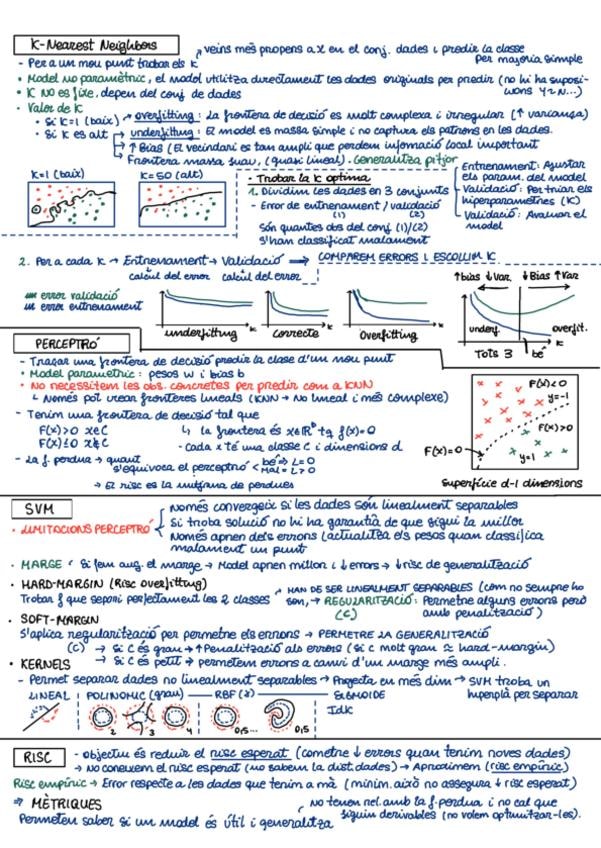 K-Nearest Neighbors
veïns més propens a x en el conj. dades i predir la classe
- Per a un mou punt trobar els K
per majoria simple
- Model no paramètric, el model utilitza directament les dades originals per predir (no hi ha suposi-
cions Y~N...)
- K NO es fixe, depen del conj de dades
- Valor de K
• Si K=1 (baix) → overfitting: La frontera de decisió es molt complexa i irregular (↑ variança)
• Si K es alt → underfitting: El model es massa simple i no captura els patrons en les dades.
↑ Bias (El vecindari es tan ampli que perdem informació local important
Frontera massa suau, (quasi lineal). Generalitza pitjor
K=1 (baix)
K=50 (alt)
- Trobar la K optima
1. Dividim les dades en 3 conjunts
- Error de entrenament / validació
(1) (2)
Són quantes obs del conj (1)/(2)
s'han classificat malament
Entrenament: Ajustar
els param. del model
Validació: Per triar els
hiperparametres (K)
Validació: Avaluar el
model
2. Per a cada K → Entrenament → Validació ⇒ COMPAREM ERRORS I ESCOLLIM K
càlcul del error càlcul del error
error validació
error entrenament
underfitting
K
correcte
K
overfitting
K
↑bias ↓Var.
↓Bias ↑Var
underf.
overfit.
Tots 3
bé
K
PERCEPTRÓ
- Traçar una frontera de decisió predir la clase d'un nou punt
- Model parametric: pesos w i bias b
- No necessitem les obs. concretes per predir com a KNN
↳ Només pot crear fronteres lineals (KNN → No lineal i més complexe)
- Tenim una frontera de decisió tal que
F(x)>0 x∈C
F(x)≤0 x∉C
↳ la frontera és x∈ℝᵈ tq f(x)=0
- Cada x té una classe C i dimensions d
- La f. perdua → quant
s'equivoca el perceptró
bé ⇒ L=0
Mal = L>0
→ El risc es la mitjana de perdues
F(x)<0
y=-1
F(x)>0
F(x)=0
y=1
Superfície d-1 dimensions
SVM
• LIMITACIONS PERCEPTRÓ
Només convergeix si les dades són linealment separables
Si troba solució no hi ha garantia de que sigui la millor
Només apnen dels errors (actualitza els pesos quan classifica
malament un punt
• MARGE: Si fem aug. el marge → Model apnen millor i ↓errors → ↓risc de generalització
• HARD-MARGIN (Risc overfitting)
Trobar f que separi perfectament les 2 classes
HAN DE SER LINEALMENT SEPARABLES (com no sempre ho
són, → REGULARITZACIÓ: Permetre alguns errors però
(C) amb penalització)
• SOFT-MARGIN
S'aplica regularització per permetre els errors → PERMETRE LA GENERALITZACIÓ
(C) → Si C és gran → ↑Penalització als errors (si C molt gran ≈ hard-margin)
→ Si C és petit → permetem errors a canvi d'un marge més ampli.
• KERNELS
- Permet separar dades no linealment separables → Projecta en més dim → SVM troba un
hiperplà per separar
LINEAL
POLINOMIC (grau)
RBF (γ)
SIGMOIDE
2
3
4
0,5...
0,5
Idk
RISC
- Objectiu és reduir el risc esperat (cometre ↓ errors quan tenim noves dades)
→ No coneixem el risc esperat (no sabem la dist. dades) → Aproximem (risc empíric)
Risc empíric → Error respecte a les dades que tenim a mà (minim. això no assegura ↓ risc esperat)
⇒ MÈTRIQUES
No tenen rel. amb la f. perdua i no cal que
siguin derivables (no volem optimitzar-les).
Permeten saber si un model és útil i generalitza